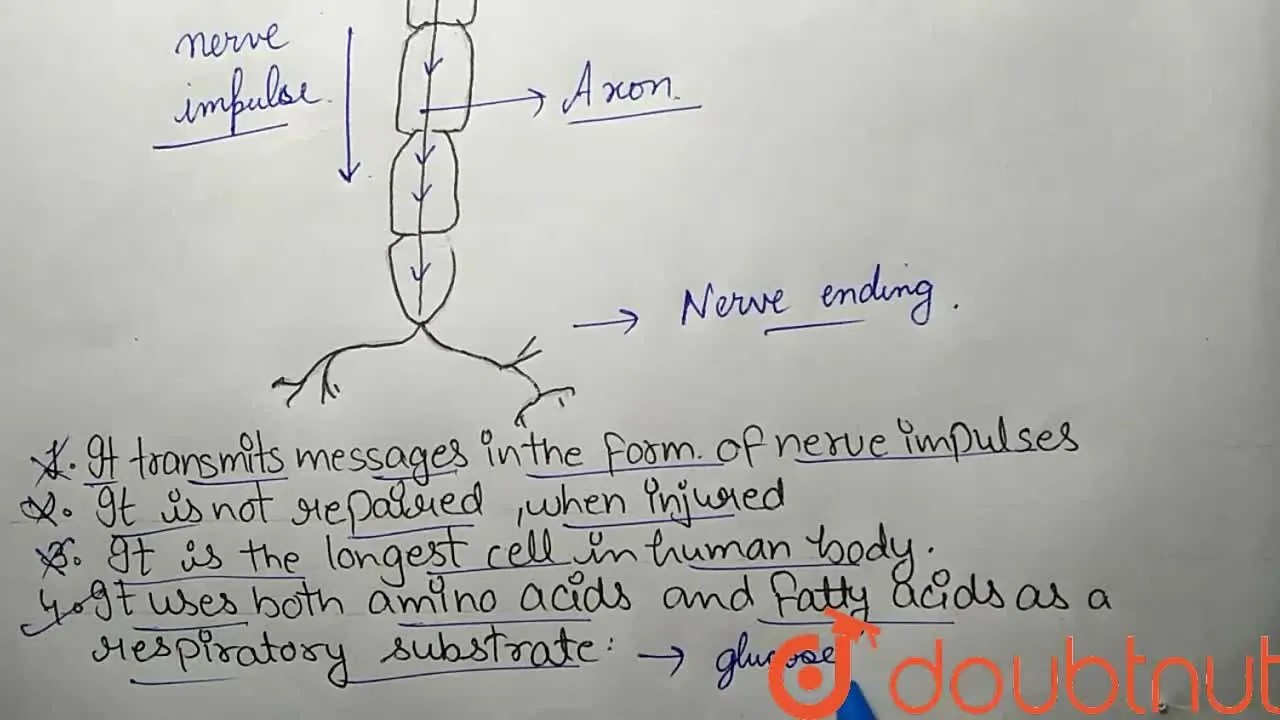 nerve
impulse.
Axon.
Nerve ending.
1. It transmits messages in the form of nerve impulses
2. It is not repaired, when injured
3. It is the longest cell in human body.
4. It uses both amino acids and fatty acids as a
respiratory substrate: → glucose
doubtnut